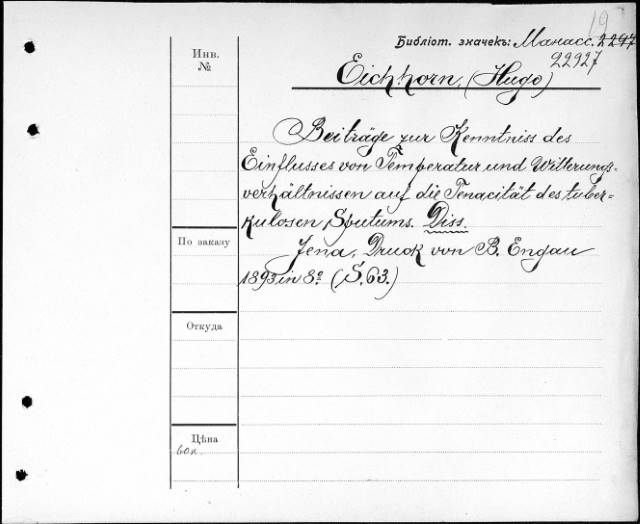 19
Библіот. значекъ: Манасс. 2297
22927
Инв.
№
Eichhorn, (Hugo)
Beiträge zur Kenntniss des
Einflusses von Temperatur und Witterungs-
verhältnissen auf die Tenacität des tuber-
kulosen Sputums. Diss.
По заказу
Jena, Druck von B. Engau
1893 in 8º (S. 63.)
Откуда
Цѣна
60 к.